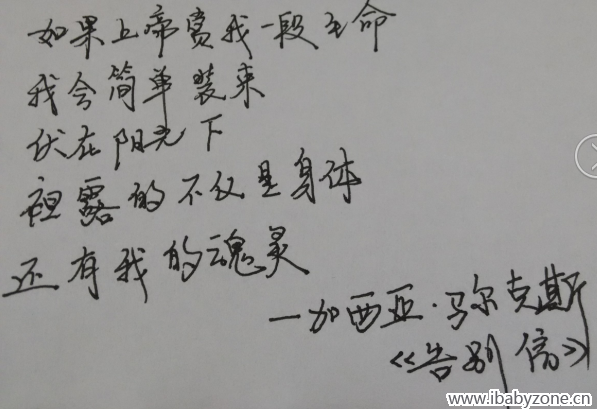 如果上帝赏我一段生命
我会简单装束
伏在阳光下
袒露的不仅是身体
还有我的魂灵
—加西亚·马尔克斯
《告别信》
www.ibabyzone.cn